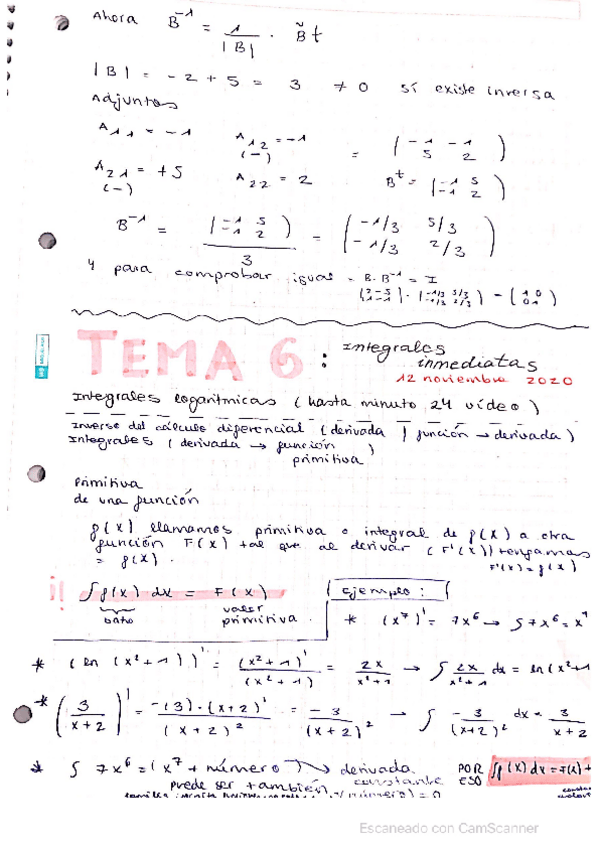 Ahora B⁻¹ = 1/|B| · B̃t
|B| = -2 + 5 = 3 ≠ 0 sí existe inversa
Adjuntos
A11 = -1 A12 = -1 = (-1 -1)
(-) ( 5 2)
A21 = +5 A22 = 2 Bᵗ = (-1 5)
(-) (-1 2)
B⁻¹ = (-1 5 / -1 2) / 3 = (-1/3 5/3)
(-1/3 2/3)
y para comprobar igual - B·B⁻¹ = I
(2 -5 / 1 -1) · (-1/3 5/3 / -1/3 2/3) = (1 0 / 0 1)
TEMA 6: Integrales
inmediatas
12 noviembre 2020
Integrales logarítmicas (hasta minuto 24 vídeo)
Inverso del cálculo diferencial (derivada | función → derivada)
Integrales (derivada → función
primitiva)
Primitiva
de una función
f(x) llamamos primitiva o integral de f(x) a otra
función F(x) tal que al derivar (F'(x)) tengamos
= f(x). F'(x) = f(x)
∫f(x) dx = F(x) Ejemplo:
dato valor
primitiva. * (x⁷)' = 7x⁶ → ∫7x⁶ = x⁷
* (ln (x²+1))' = (x²+1)'/(x²+1) = 2x/x²+1 → ∫ 2x/x²+1 dx = ln(x²+1
* (3/x+2)' = -(3)·(x+2)'/(x+2)² = -3/(x+2)² → ∫ -3/(x+2)² dx = 3/x+2
* ∫ 7x⁶ = (x⁷ + número) → derivada POR ∫f(x) dx = F(x) +
puede ser también constante ESO
(número) = 0
Escaneado con CamScanner